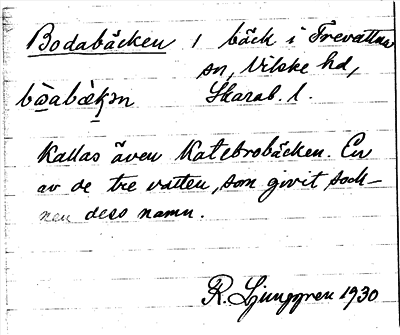 Bodabäcken 1 bäck i Trevattna
sn, Vilske hd,
bòabæ̀kən Skarab. l.
Kallas även Katebrobäcken. En
av de tre vatten, som givit sock-
nen dess namn.
R. Ljunggren 1930